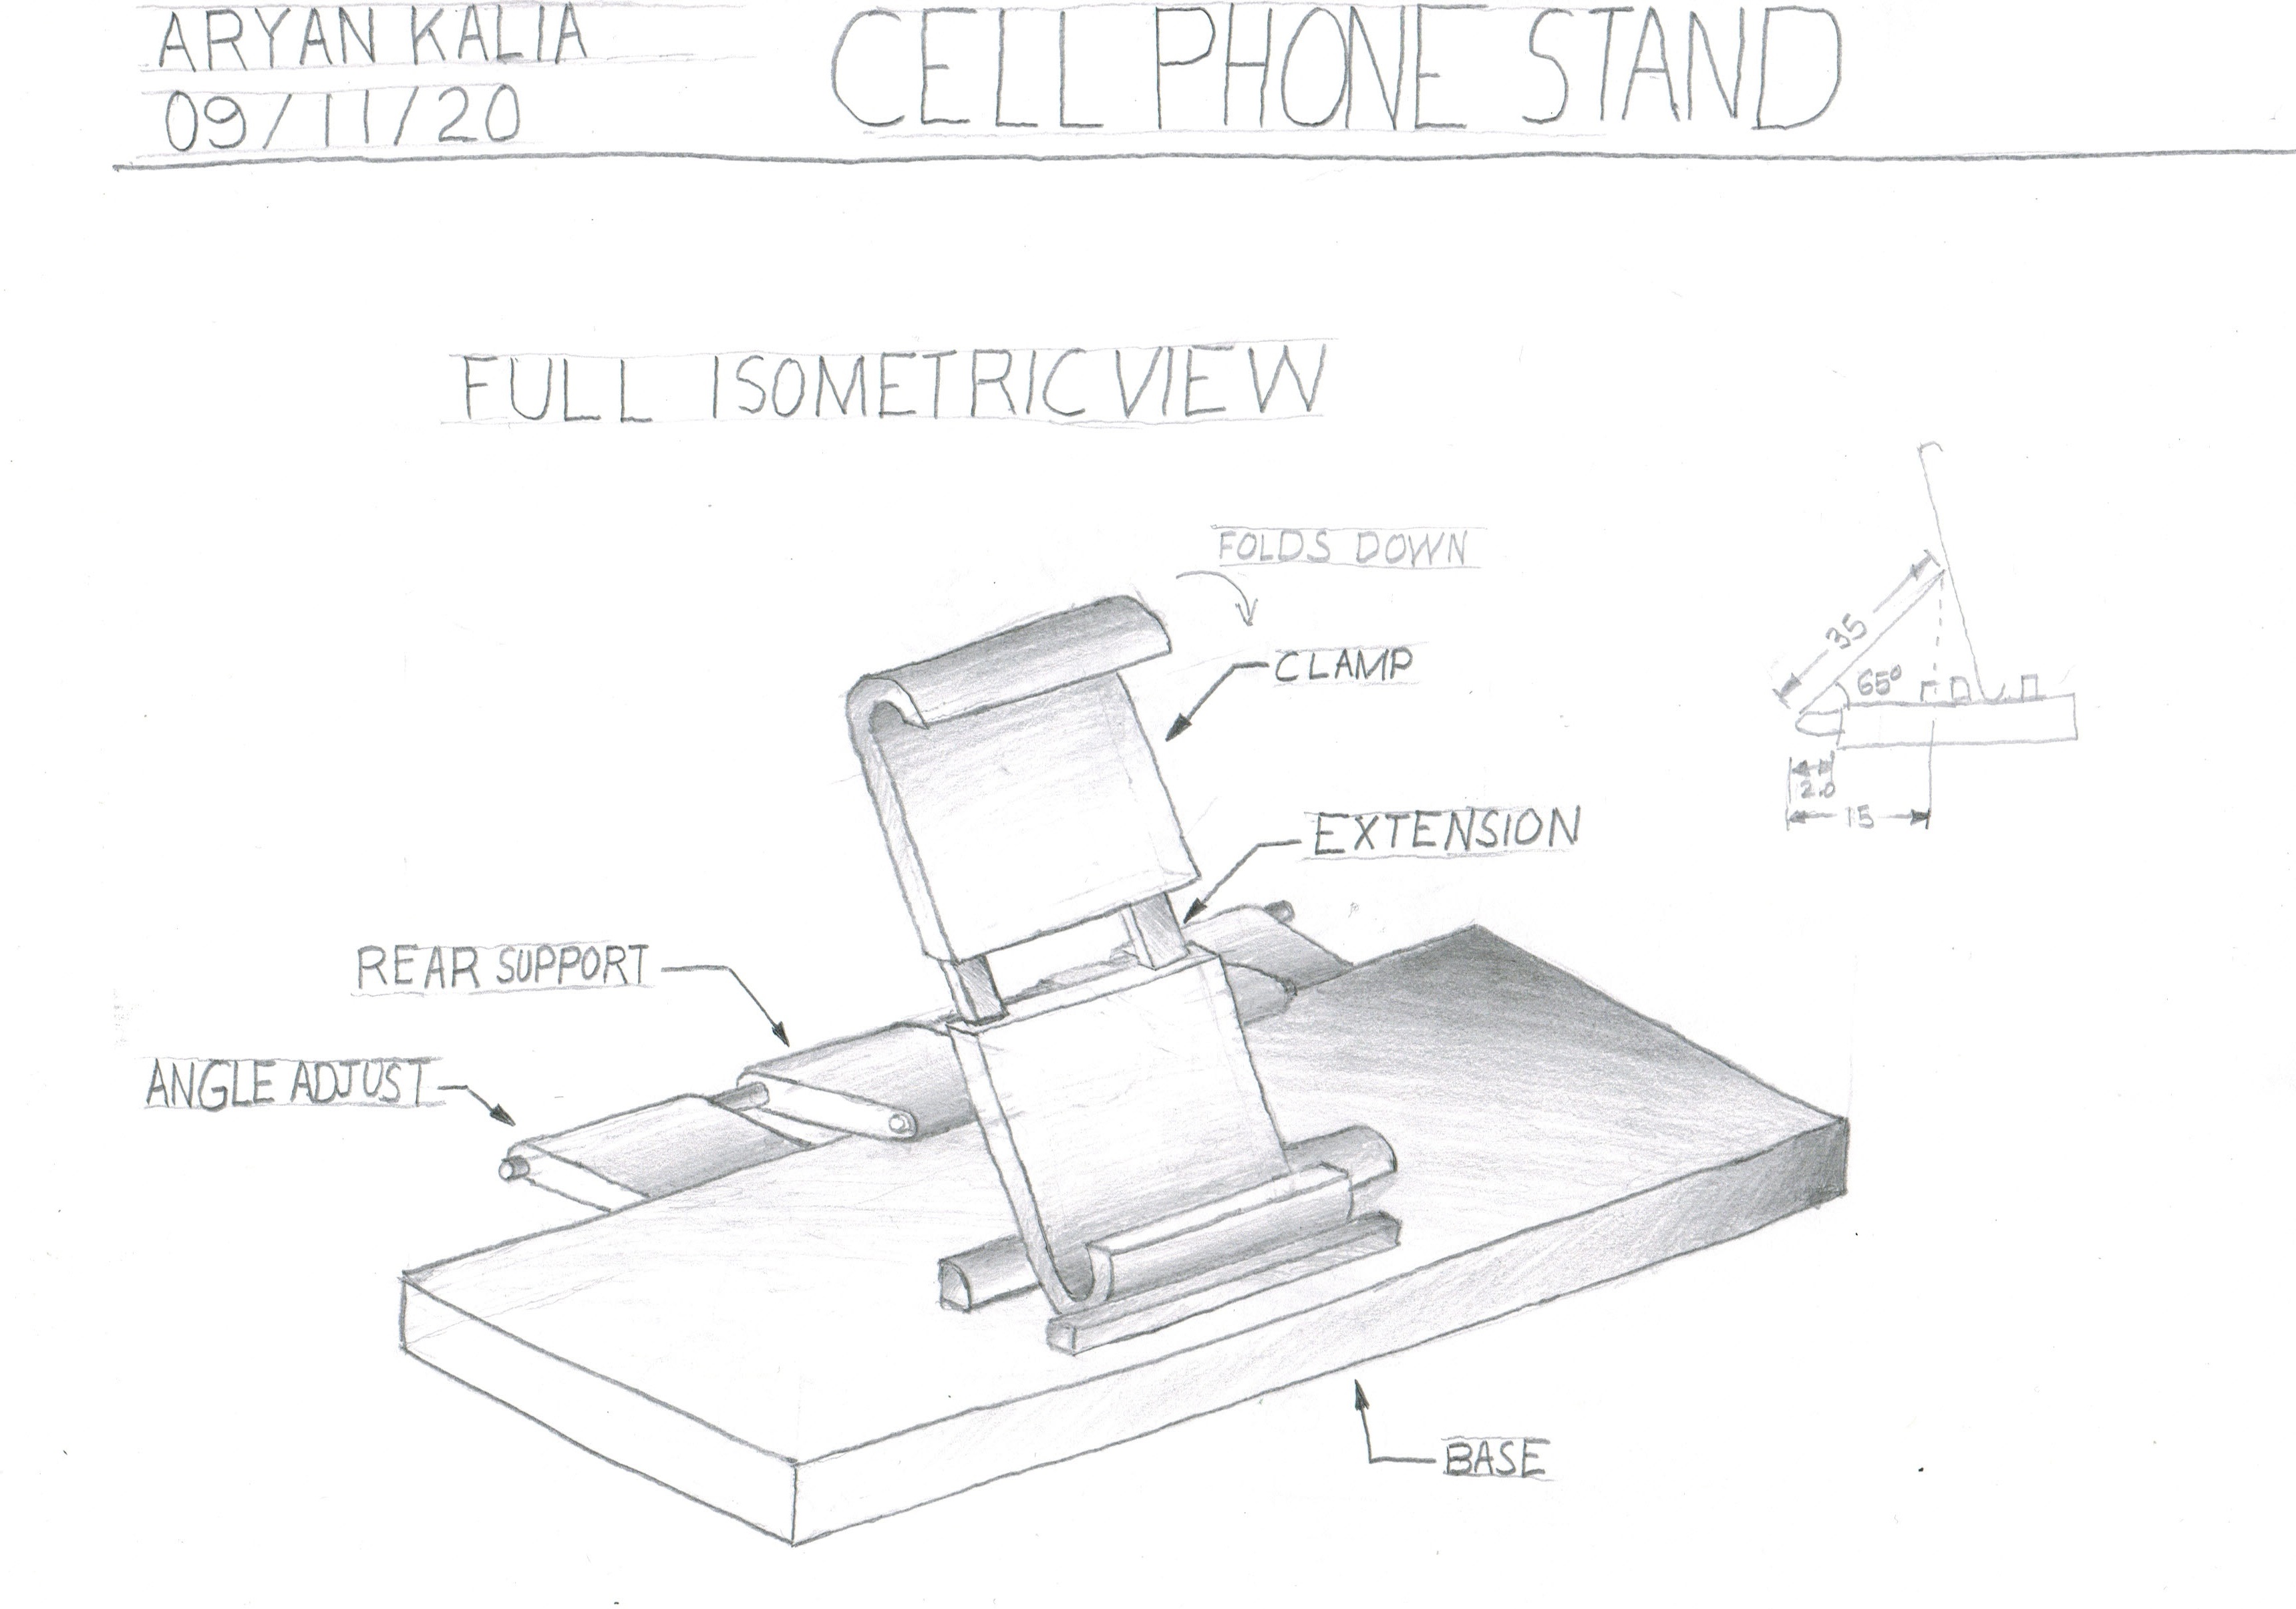 ARYAN KALIA
09/11/20
CELL PHONE STAND
FULL ISOMETRIC VIEW
FOLDS DOWN
CLAMP
EXTENSION
REAR SUPPORT
ANGLE ADJUST
BASE
35
65°
2.0
15